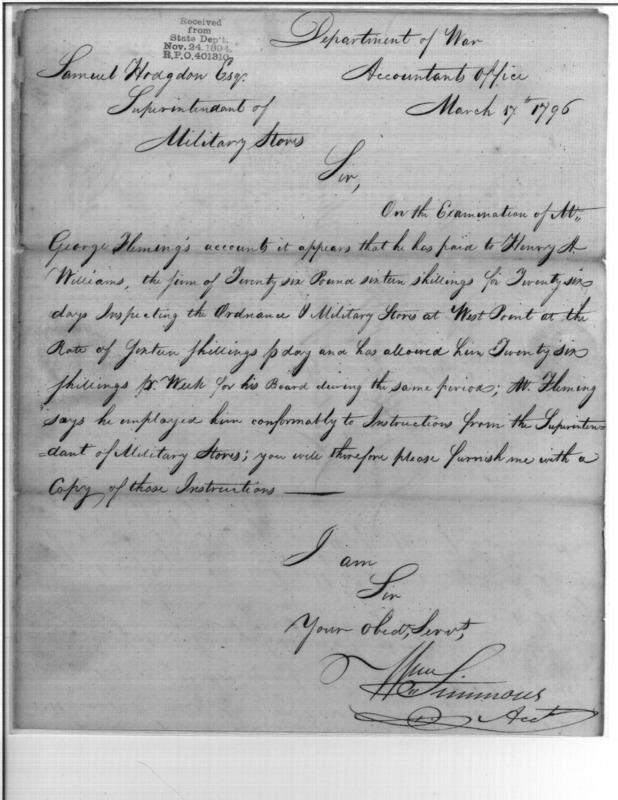 Received
from
State Dep't.
Nov. 24. 1894.
R.P.O. 401310
Department of War
Samuel Hodgdon Esqr.
Accountants Office
Superintendant of
March 17th 1796
Military Stores
Sir,
On the Examination of Mr.
George Fleming's accounts it appears that he has paid to Henry A
Williams, the sum of Twenty six Pound sixteen shillings for Twenty six
days Inspecting the Ordnance & Military Stores at West Point at the
Rate of sixteen shillings p day and has allowed him Twenty six
shillings pr. Week for his Board during the same period; Mr. Fleming
says he employed him conformably to Instructions from the Superinten=
=dant of Military Stores; you will therefore please furnish me with a
Copy of those Instructions —
I am
Sir
Your obedt. Servt,
Wm Simmons
Acct